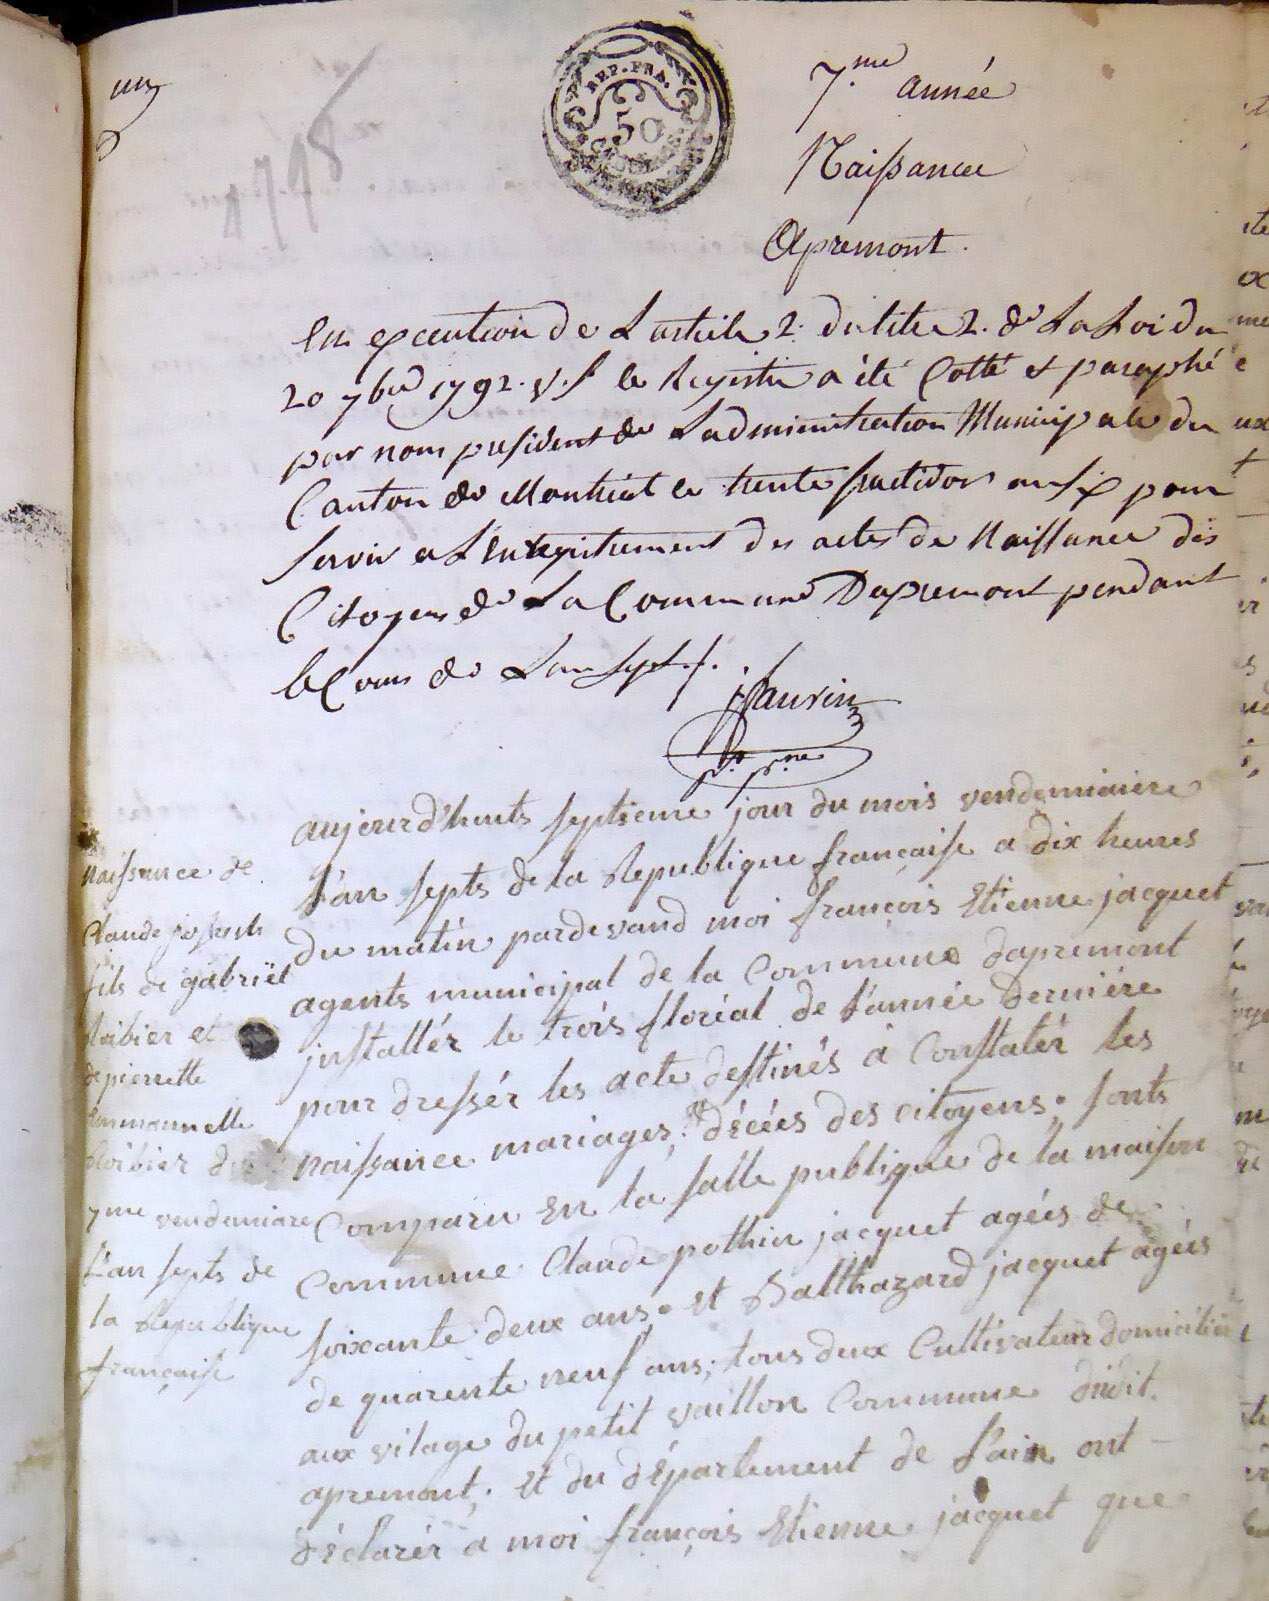 un
1798
REP. FRA.
50
CENTIMES.
7.me année
Naissance
Apremont.
En execution de Larticle 2. du titre 2. de La Loi du
20 7bre 1792. v. s le Registre a été Cotté et paraphé
par nous president de Ladministration Municipale du
Canton de Montreal le trente fructidor an six pour
servir a L'Enregistrement des actes de Naissance des
Citoyens de La Commune Dapremont pendant
le Cours de Lan sept ./.
aujourd'huits septieme jour du mois vendemiaire
l'an septs de la Republique française a dix heures
du matin pardevand moi françois Etienne jacquet
agents municipal de la Commune dapremont
jnstallér le trois floréal de l'année derniére
pour dressér les acte destinés a Constatér les
naissance mariages, et décées des citoyens; sonts
Comparu En la salle publique de la maison
Commune Claude pothin jacquet agées de
soixante deux ans et Balthazard jacquet agées
de quarente neuf ans; tous deux Cultivateur domiciliés
aux vilage du petit vaillon Commune dudit
apremont; et du département de l'ain ont
déclarér a moi françois Etienne jacquet que
Naissance de
Claude joseph
fils de gabriël
Loibier et
de pierrette
Emmonnelle
Loibier du
7me vendemiare
l'an septs de
la Republique
française